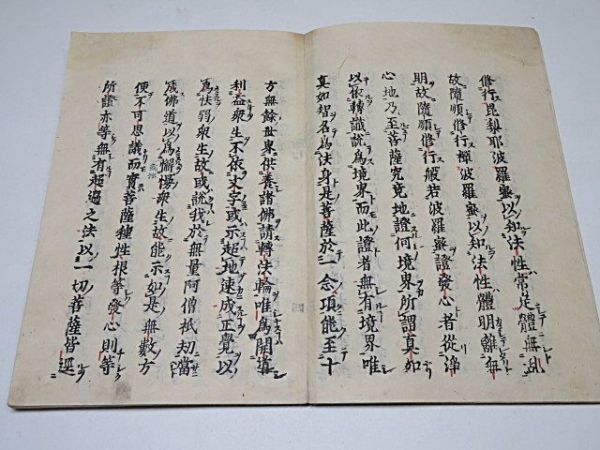 修行毘梨耶波羅蜜以知法性常定體無乱
故隨順修行禪波羅蜜以知法性體明離無
明故隨順修行般若波羅蜜證發心者從淨
心地乃至菩薩究竟地證何境界所謂真如
以依轉識說為境界而此證者無有境界唯
真如智名為法身是菩薩於一念頃能至十
方無餘世界供養諸佛請轉法輪唯為開導
利益衆生不依文字或示超地速成正覺以
為怯弱衆生故或說我於無量阿僧祇劫當
成佛道以為懈慢衆生故能示如是無數方
便不可思議而實菩薩種性根等發心則等
所證亦等無有超過之法以一切菩薩皆逕